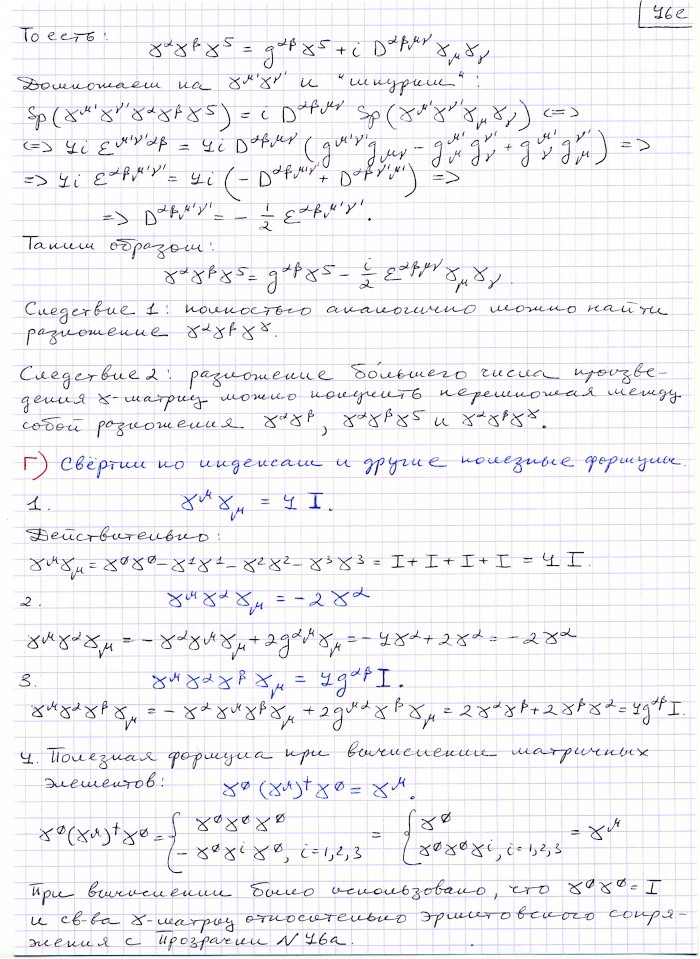 46е
То есть:
γ^α γ^β γ^5 = g^{αβ} γ^5 + i D^{αβμν} γ_μ γ_ν
Домножаем на γ^{μ'} γ^{ν'} и "шпурим":
Sp(γ^{μ'} γ^{ν'} γ^α γ^β γ^5) = i D^{αβμν} Sp(γ^{μ'} γ^{ν'} γ_μ γ_ν) <=>
<=> 4i ε^{μ'ν'αβ} = 4i D^{αβμν} (g^{μ'ν'} g_{μν} - g^{μ'}_μ g^{ν'}_ν + g^{μ'}_ν g^{ν'}_μ) =>
=> 4i ε^{αβμ'ν'} = 4i (-D^{αβμ'ν'} + D^{αβν'μ'}) =>
=> D^{αβμ'ν'} = - 1/2 ε^{αβμ'ν'}.
Таким образом:
γ^α γ^β γ^5 = g^{αβ} γ^5 - i/2 ε^{αβμν} γ_μ γ_ν.
Следствие 1: полностью аналогично можно найти
разложение γ^α γ^β γ^γ.
Следствие 2: разложение бо́льшего числа произве-
дения γ-матриц можно получить перемножая между
собой разложения γ^α γ^β, γ^α γ^β γ^5 и γ^α γ^β γ^γ.
Г) Свёртки по индексам и другие полезные формулы.
1. γ^μ γ_μ = 4 I.
Действительно:
γ^μ γ_μ = γ^0 γ^0 - γ^1 γ^1 - γ^2 γ^2 - γ^3 γ^3 = I + I + I + I = 4 I.
2. γ^μ γ^α γ_μ = -2 γ^α
γ^μ γ^α γ_μ = - γ^α γ^μ γ_μ + 2g^{αμ} γ_μ = -4γ^α + 2γ^α = -2γ^α
3. γ^μ γ^α γ^β γ_μ = 4g^{αβ} I.
γ^μ γ^α γ^β γ_μ = - γ^α γ^μ γ^β γ_μ + 2g^{μα} γ^β γ_μ = 2γ^α γ^β + 2γ^β γ^α = 4g^{αβ} I.
4. Полезная формула при вычислении матричных
элементов: γ^0 (γ^μ)^† γ^0 = γ^μ.
γ^0 (γ^μ)^† γ^0 = { γ^0 γ^0 γ^0 ; -γ^0 γ^i γ^0, i=1,2,3 = { γ^0 ; γ^0 γ^0 γ^i, i=1,2,3 = γ^μ
При вычислении было использовано, что γ^0 γ^0 = I
и св-ва γ-матриц относительно эрмитовского сопря-
жения с Прозрачки N 46а.